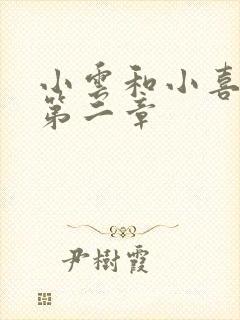 小雲和小喜
第二章
尹樹霞